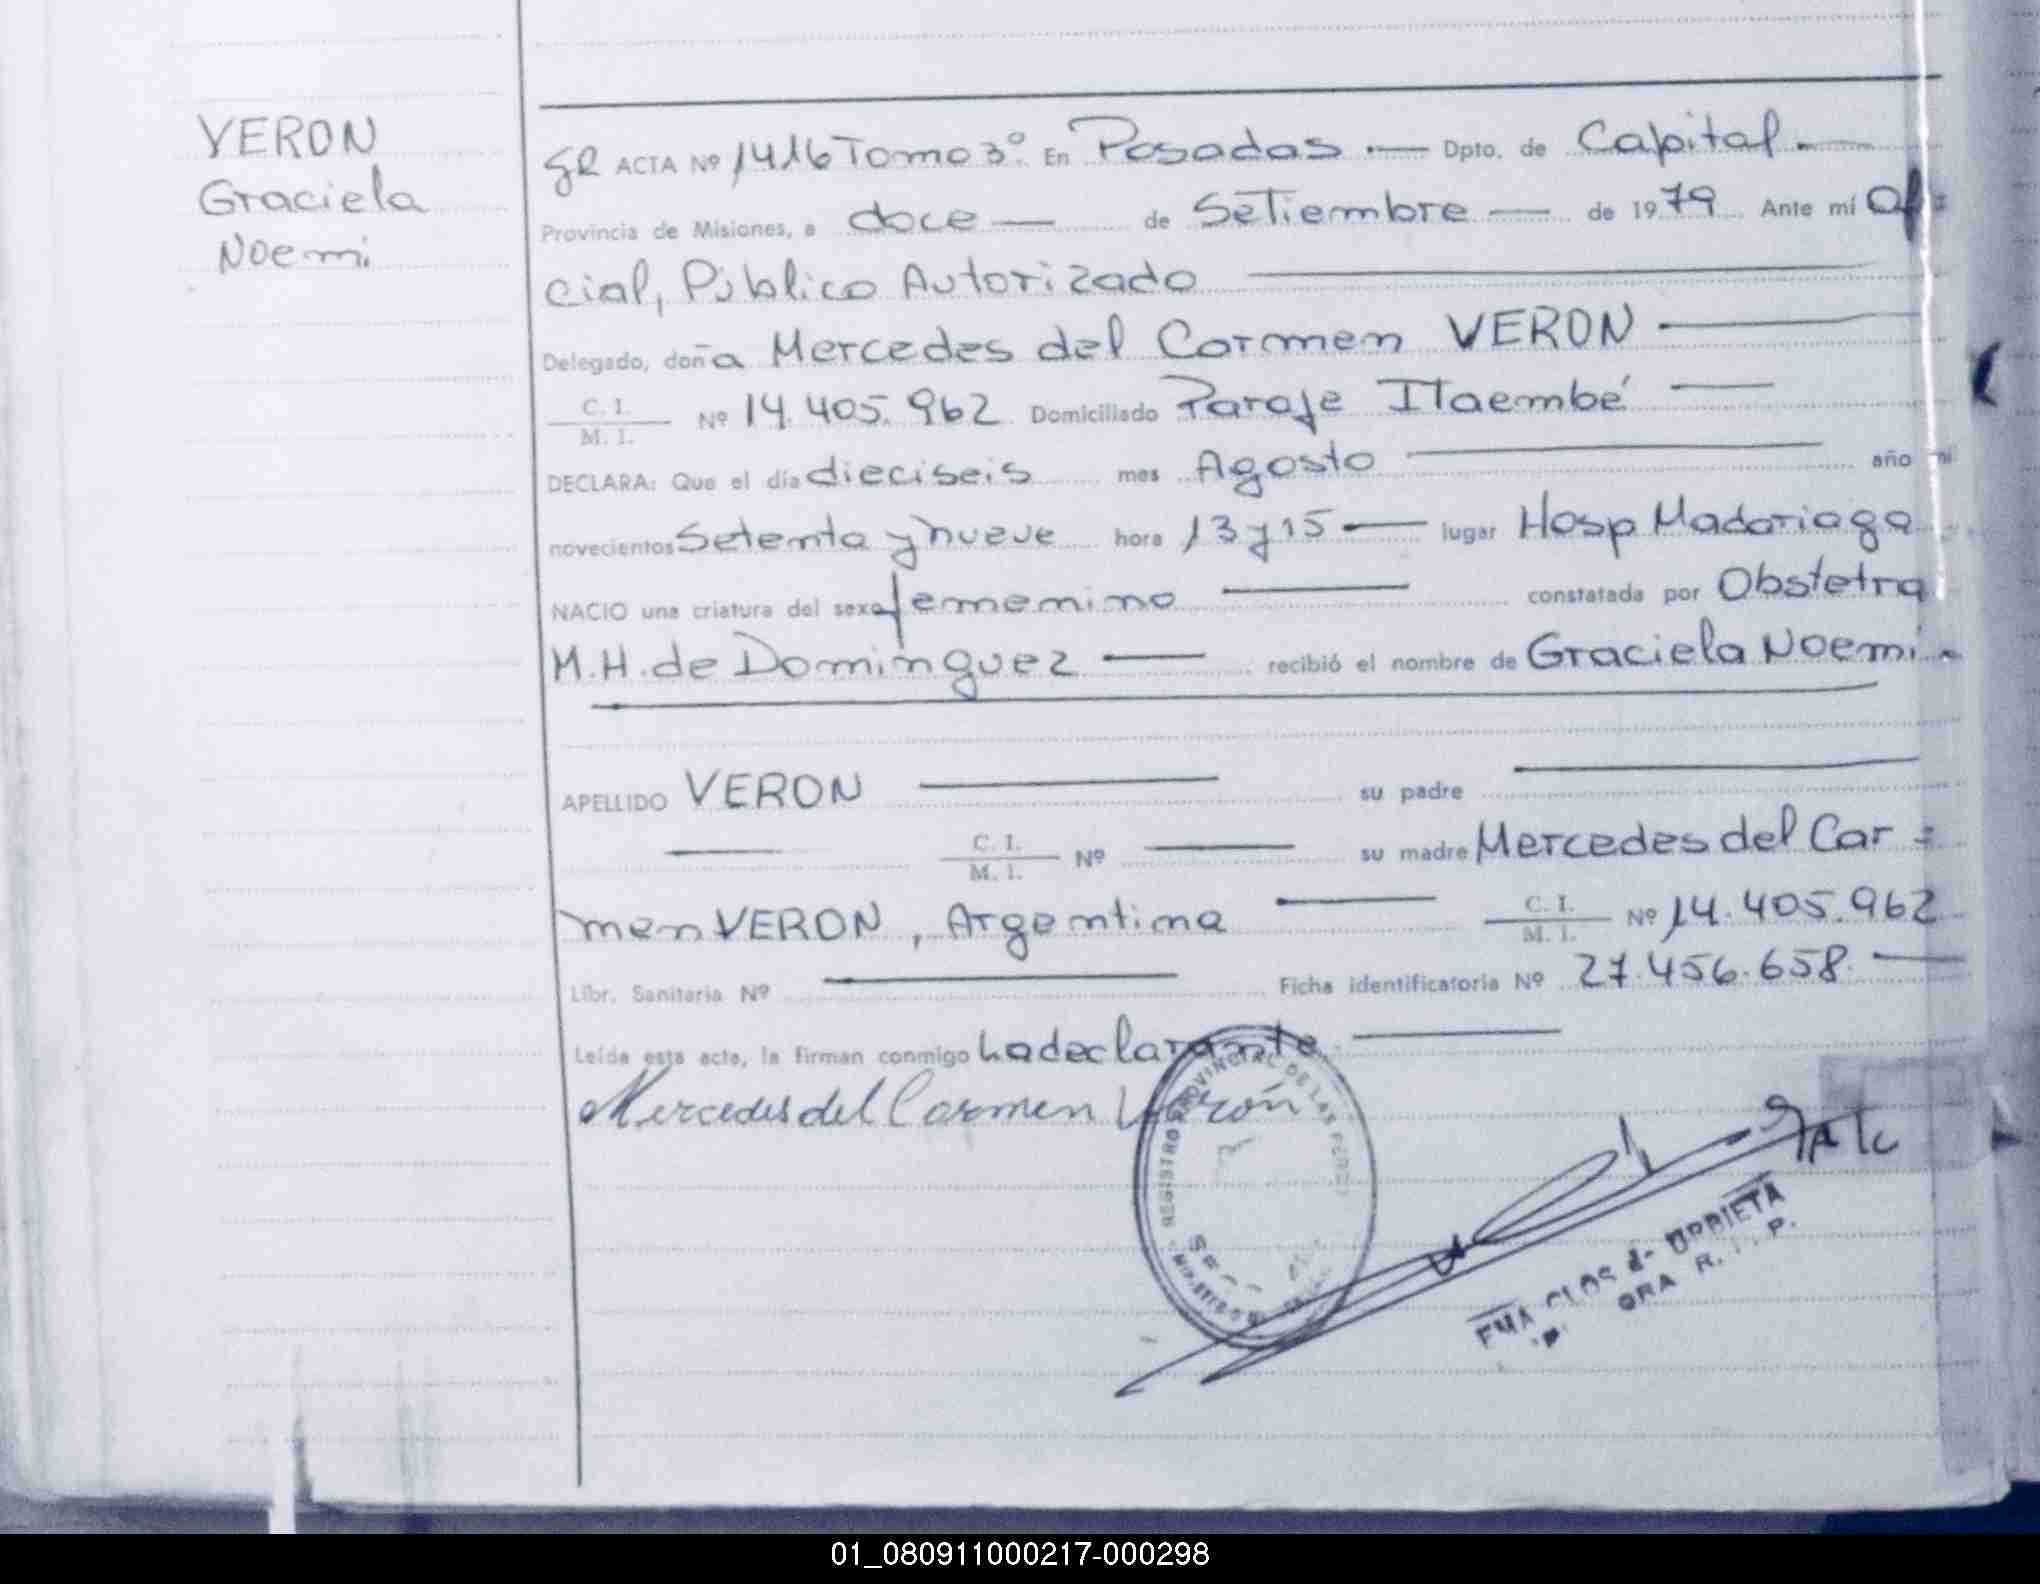 VERON
Graciela
Noemi
ACTA Nº 1416 Tomo 3º. En Posadas.— Dpto. de Capital.—
Provincia de Misiones, a doce — de Setiembre — de 1979 Ante mí Ofi=
cial, Público Autorizado
Delegado, doña Mercedes del Carmen VERON
C. I.
M. I. Nº 14.405.962 Domiciliado Paraje Itaembé —
DECLARA: Que el día dieciseis mes Agosto — año mi
novecientos Setenta y nueve hora 13 y 15 — lugar Hosp Madariaga
NACIO una criatura del sexo femenino — constatada por Obstetra
M.H. de Dominguez — recibió el nombre de Graciela Noemi.-
APELLIDO VERON — su padre —
— C. I.
M. I. Nº — su madre Mercedes del Car=
men VERON, Argentina — C. I.
M. I. Nº 14.405.962
Libr. Sanitaria Nº — Ficha identificatoria Nº 27.456.658.—
Leída esta acta, la firman conmigo La declarante. —
Mercedes del Carmen Verón
REGISTRO PROVINCIAL DE LAS
URRIETA
01_080911000217-000298